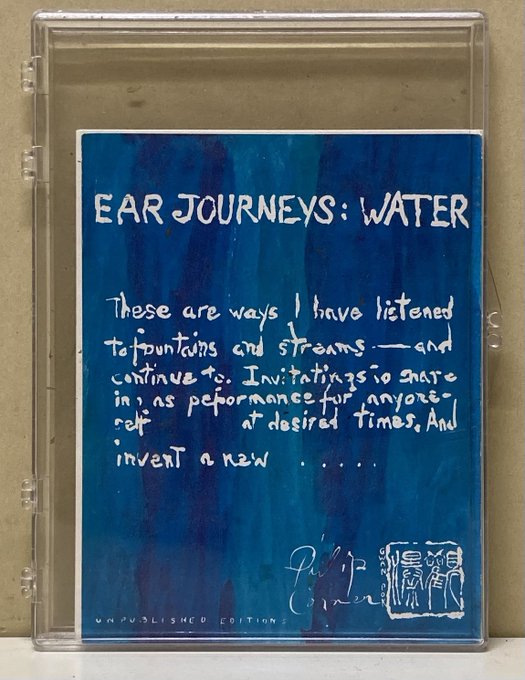 EAR JOURNEYS: WATER
These are ways I have listened
to fountains and streams — and
continue to. Invitatings to share
in; as peformance for anyone-
self at desired times. And
invent a new .....
Philip
Corner
UNPUBLISHED EDITIONS